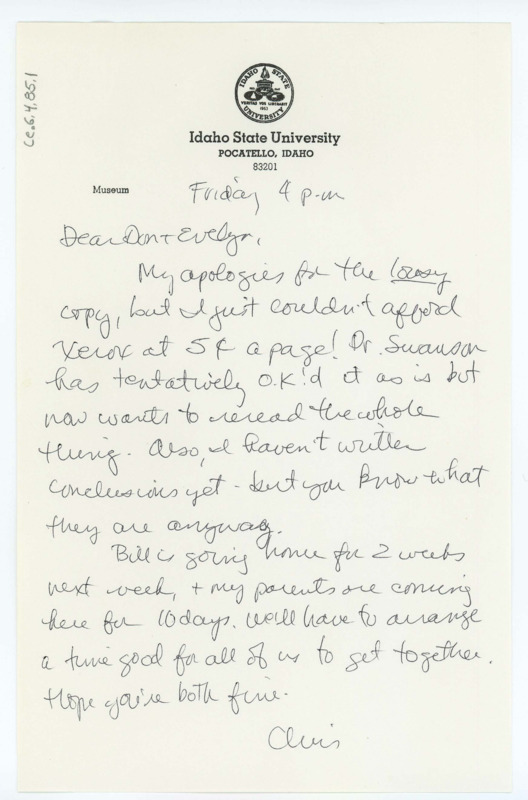 cc.6.4.85.1
IDAHO STATE UNIVERSITY
VERITAS VOS LIBERABIT
1901
Idaho State University
POCATELLO, IDAHO
83201
Museum
Friday 4 p.m
Dear Don + Evelyn,
My apologies for the lousy
copy, but I just couldn't afford
Xerox at 5¢ a page! Dr. Swanson
has tentatively O.K.'d it as is but
now wants to reread the whole
thing. Also, I haven't written
conclusions yet - but you know what
they are anyway.
Bill is going home for 2 weeks
next week, + my parents are coming
here for 10 days. We'll have to arrange
a time good for all of us to get together.
Hope you're both fine.
Chris